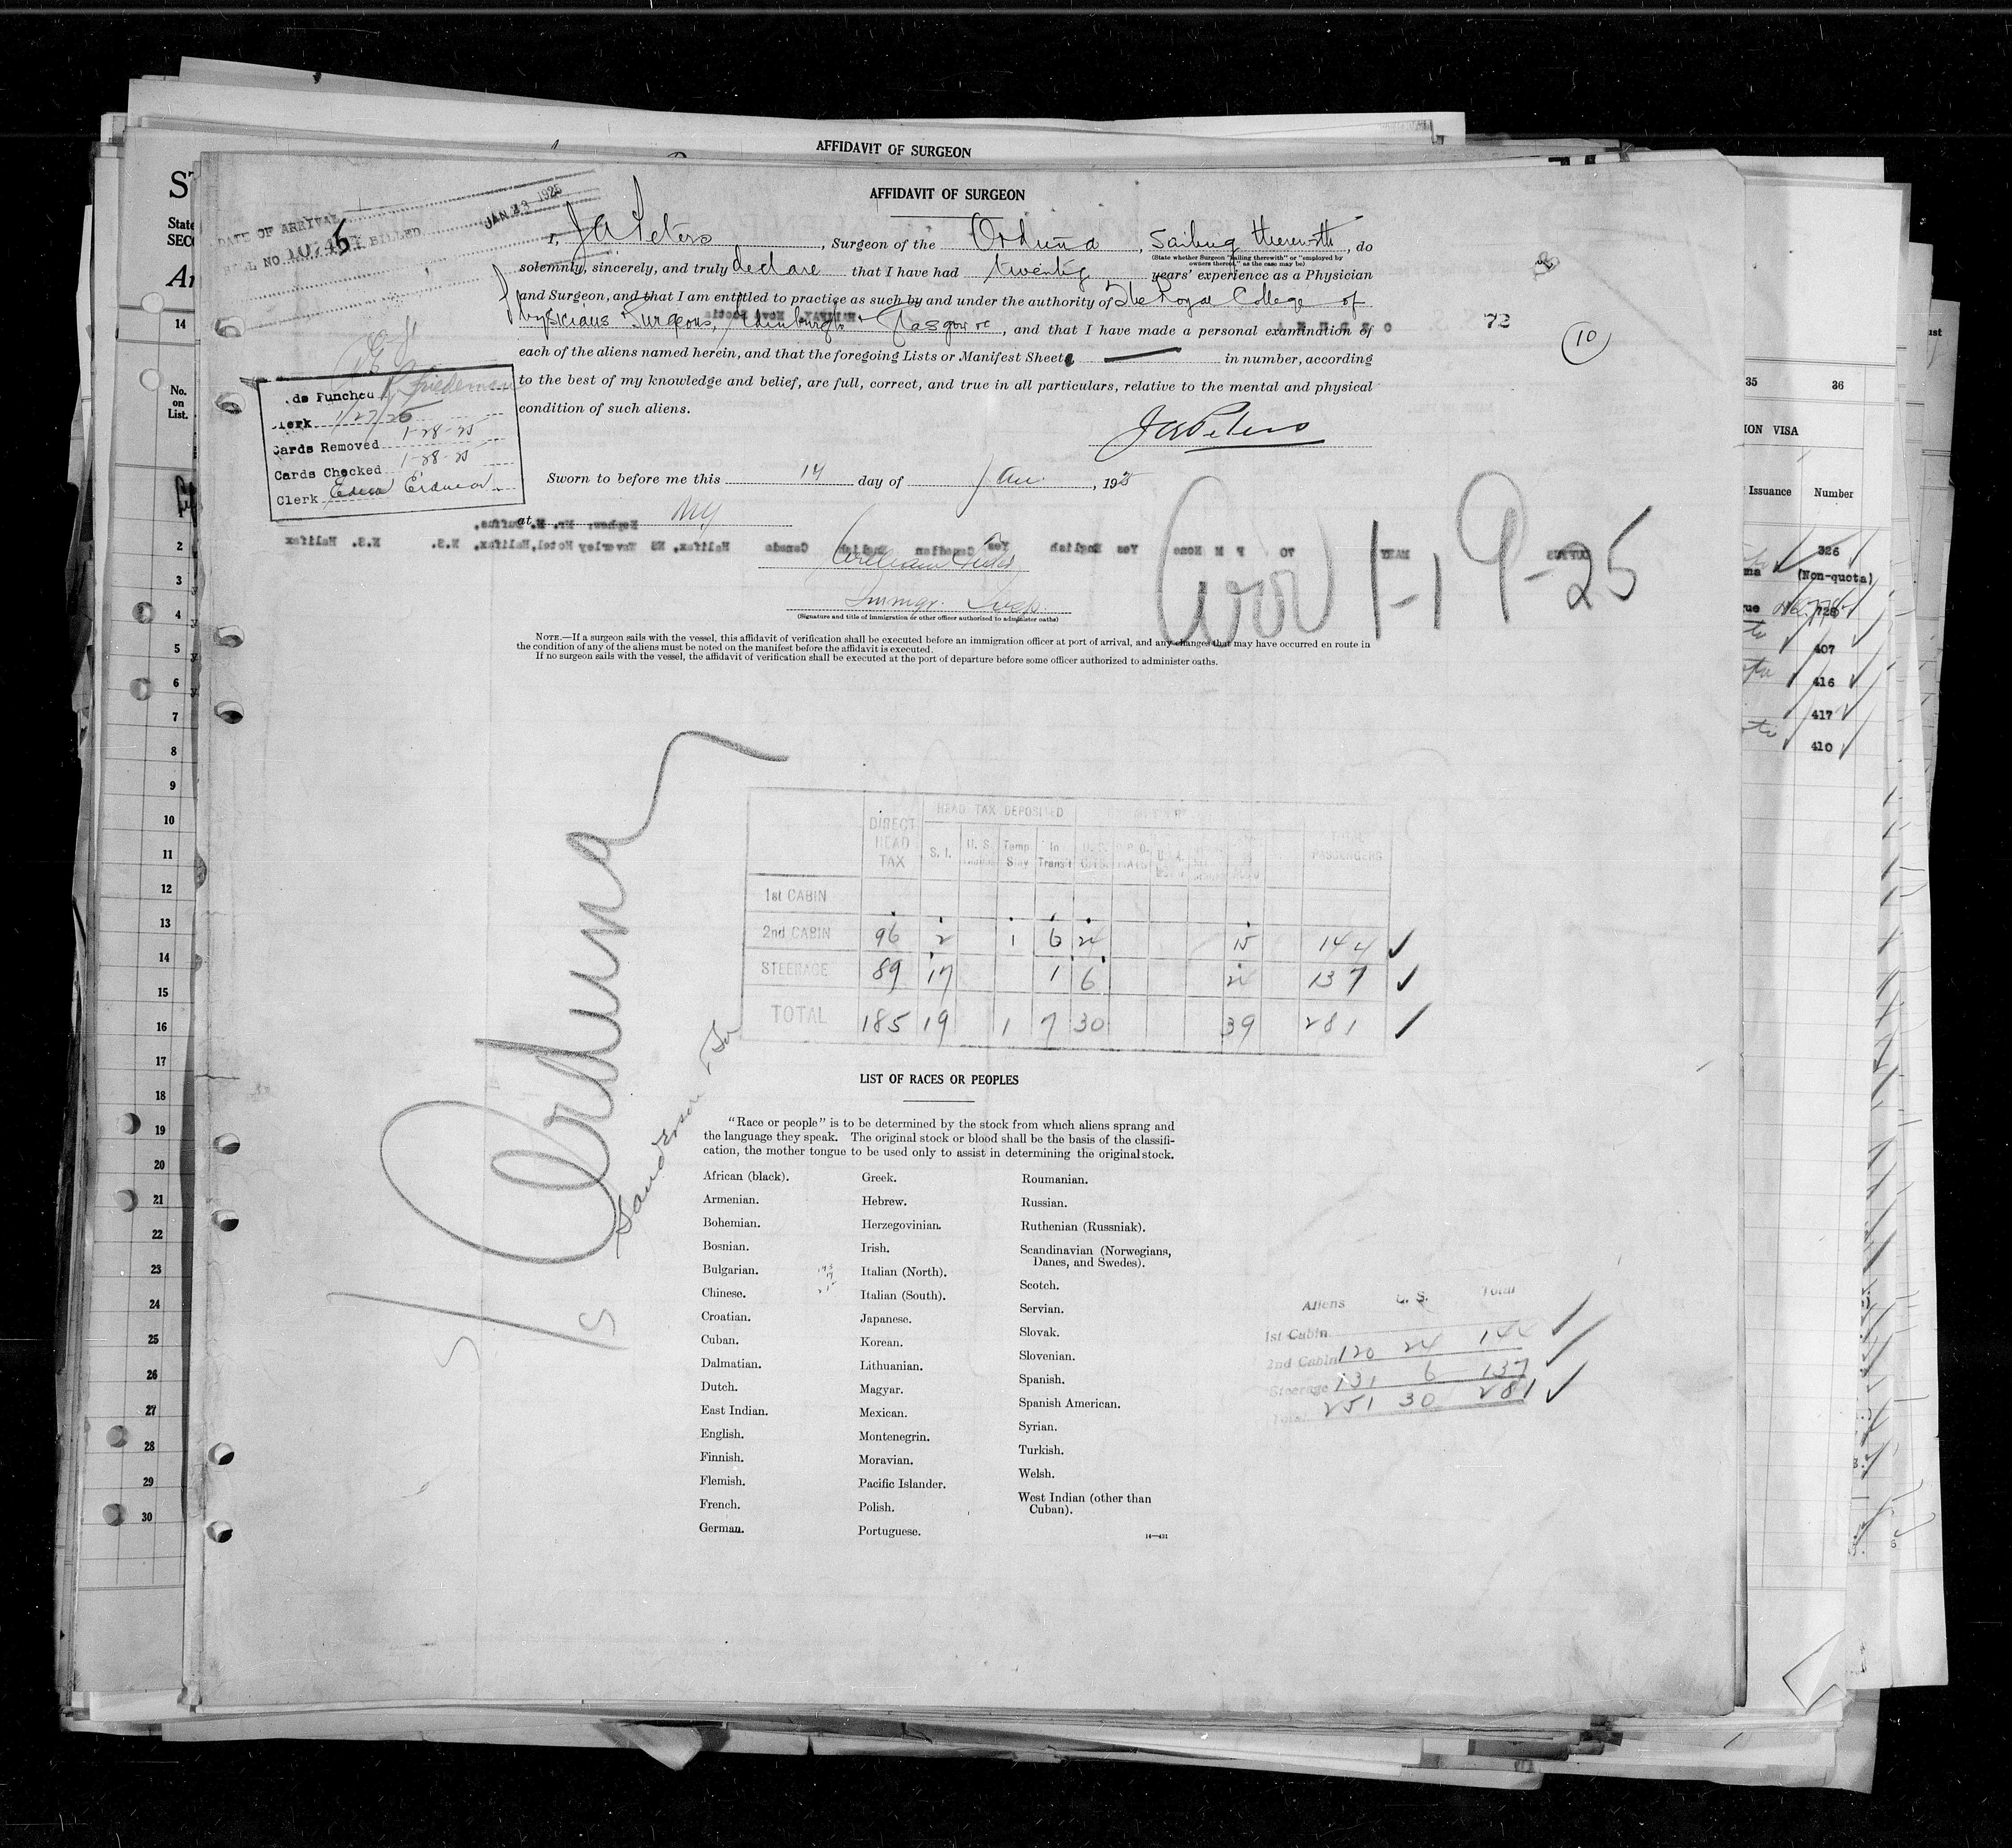 AFFIDAVIT OF SURGEON
AFFIDAVIT OF SURGEON
DATE OF ARRIVAL JAN 23 1925
BILLED
I, J A Peters, Surgeon of the Orduña, Sailing therewith, do
(State whether Surgeon "sailing therewith" or "employed by
owners thereof," as the case may be)
solemnly, sincerely, and truly declare that I have had twenty years' experience as a Physician
and Surgeon, and that I am entitled to practice as such by and under the authority of The Royal College of
Physicians & Surgeons, Edinburgh & Glasgow etc, and that I have made a personal examination of
72
10
each of the aliens named herein, and that the foregoing Lists or Manifest Sheets — in number, according
to the best of my knowledge and belief, are full, correct, and true in all particulars, relative to the mental and physical
condition of such aliens.
J A Peters
ds Punched Friedeman
Clerk 1/27/25
Cards Removed 1-28-25
Cards Checked 1-28-25
Clerk Edna
Sworn to before me this 14 day of Jan., 1925
at NY
William
Immgr. Insp.
(Signature and title of immigration or other officer authorized to administer oaths)
Arr 1-19-25
NOTE.—If a surgeon sails with the vessel, this affidavit of verification shall be executed before an immigration officer at port of arrival, and any changes that may have occurred en route in
the condition of any of the aliens must be noted on the manifest before the affidavit is executed.
If no surgeon sails with the vessel, the affidavit of verification shall be executed at the port of departure before some officer authorized to administer oaths.
Orduna
Sanderson & Son
DIRECT HEAD TAX
HEAD TAX DEPOSITED
S. I. U. S. Temp Stay In Transit
PASSENGERS
1st CABIN
2nd CABIN 96 2 1 6 24 15 144
STEERAGE 89 17 1 6 24 137
TOTAL 185 19 1 7 30 39 281
LIST OF RACES OR PEOPLES
"Race or people" is to be determined by the stock from which aliens sprang and
the language they speak. The original stock or blood shall be the basis of the classifi-
cation, the mother tongue to be used only to assist in determining the original stock.
African (black).
Armenian.
Bohemian.
Bosnian.
Bulgarian.
Chinese.
Croatian.
Cuban.
Dalmatian.
Dutch.
East Indian.
English.
Finnish.
Flemish.
French.
German.
Greek.
Hebrew.
Herzegovinian.
Irish.
Italian (North).
Italian (South).
Japanese.
Korean.
Lithuanian.
Magyar.
Mexican.
Montenegrin.
Moravian.
Pacific Islander.
Polish.
Portuguese.
Roumanian.
Russian.
Ruthenian (Russniak).
Scandinavian (Norwegians,
Danes, and Swedes).
Scotch.
Servian.
Slovak.
Slovenian.
Spanish.
Spanish American.
Syrian.
Turkish.
Welsh.
West Indian (other than
Cuban).
14—431
Aliens U. S. Total
1st Cabin
2nd Cabin 120 24 144
Steerage 131 6 137
Total 251 30 281
State
No.
on
List.
14
1
2
3
4
5
6
7
8
9
10
11
12
13
14
15
16
17
18
19
20
21
22
23
24
25
26
27
28
29
30
35 36
ION VISA
Issuance Number
326
(Non-quota)
728
407
416
417
410